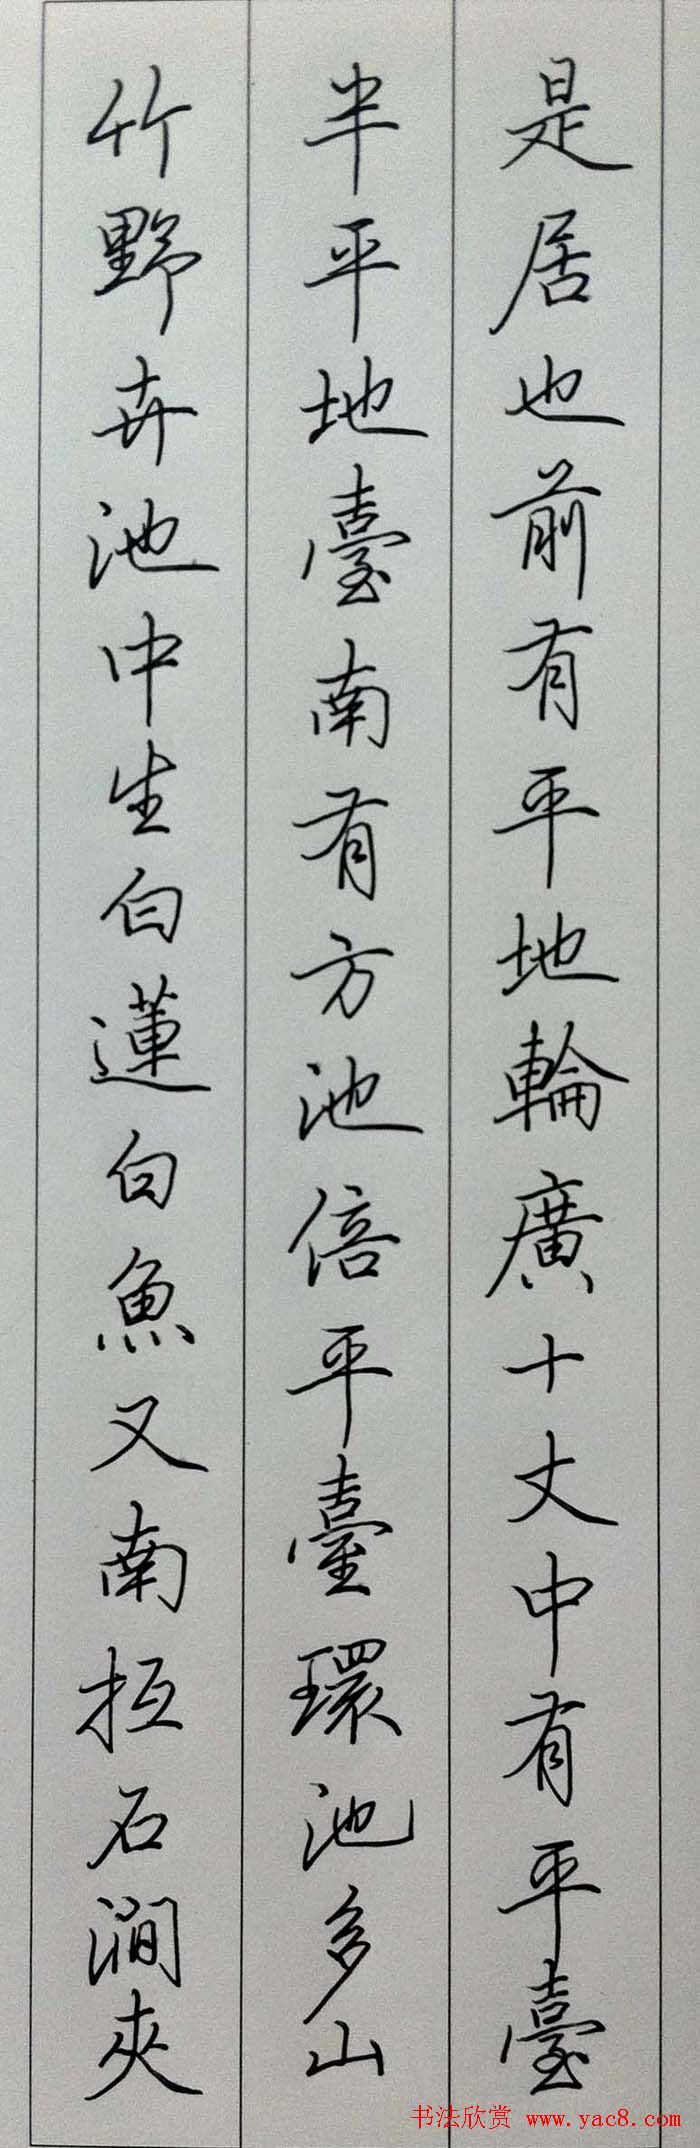 是居也前有平地輪廣十丈中有平臺
半平地臺南有方池倍平臺環池多山
竹野卉池中生白蓮白魚又南抵石澗夾
书法欣赏 www.yac8.com